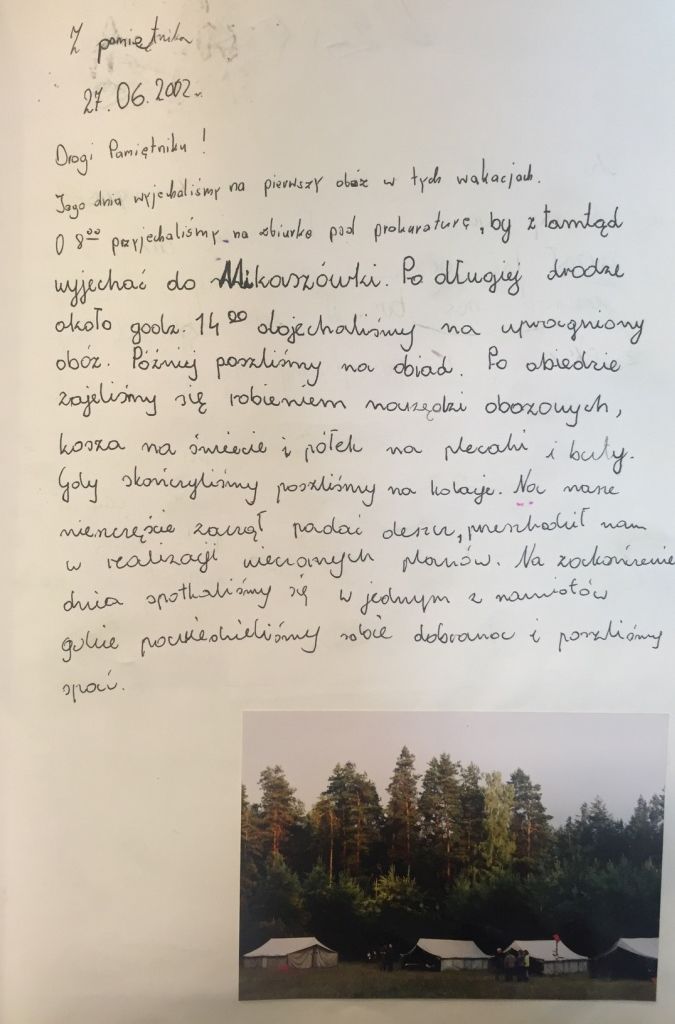 Z pamiętnika
27.06.2002r.
Drogi Pamiętniku!
Jego dnia wyjechaliśmy na pierwszy obóz w tych wakacjach.
O 8⁰⁰ przyjechaliśmy na zbiurkę pod prokuraturę, by z tamtąd
wyjechać do Mikaszówki. Po długiej drodze
około godz. 14⁰⁰ dojechaliśmy na upragniony
obóz. Później poszliśmy na obiad. Po obiedzie
zajeliśmy się robieniem narzędzi obozowych,
kosza na śmiecie i półek na plecaki i buty.
Gdy skończyliśmy poszliśmy na kolacje. Na nasze
nieszczęście zaczął padać deszcz, przeszkodził nam
w realizacji wieczornych planów. Na zakończenie
dnia spotkaliśmy się w jednym z namiotów
gdzie powiedzieliśmy sobie dobranoc i poszliśmy
spać.